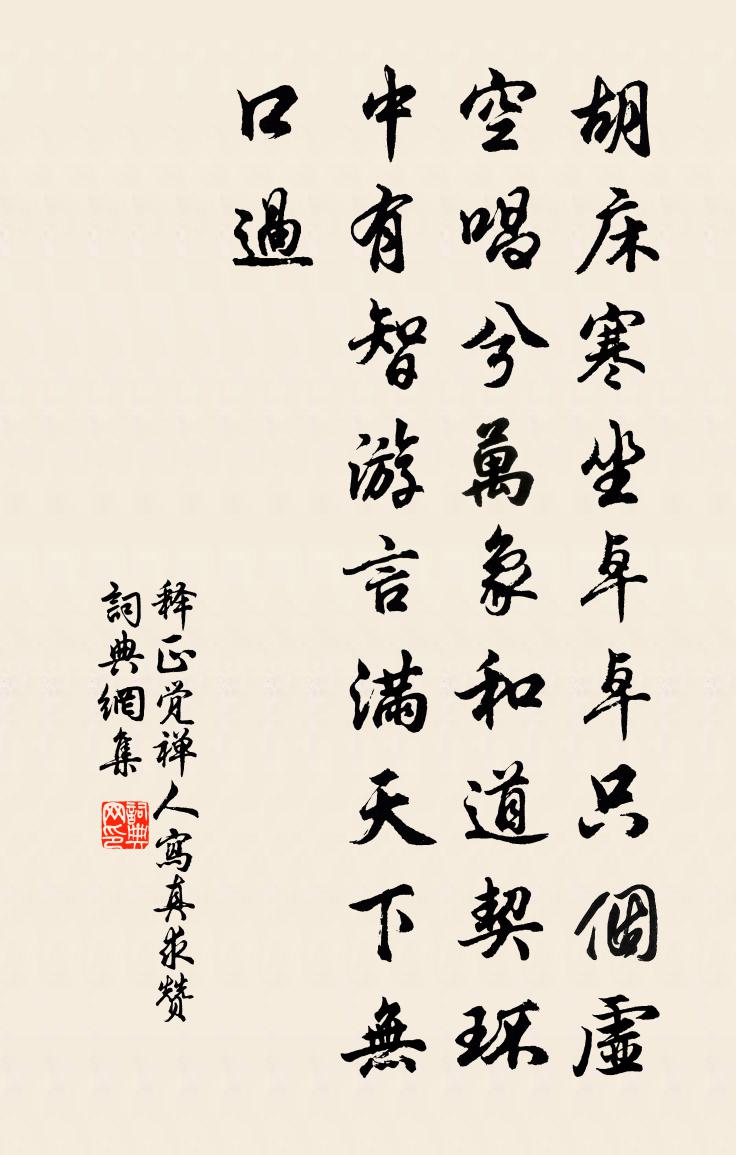 胡床寒坐卓卓只個虛
空唱兮萬象和道契环
中有智游言满天下無
口過
释正觉禅人寫真求赞
詞典網集
詞典
网印